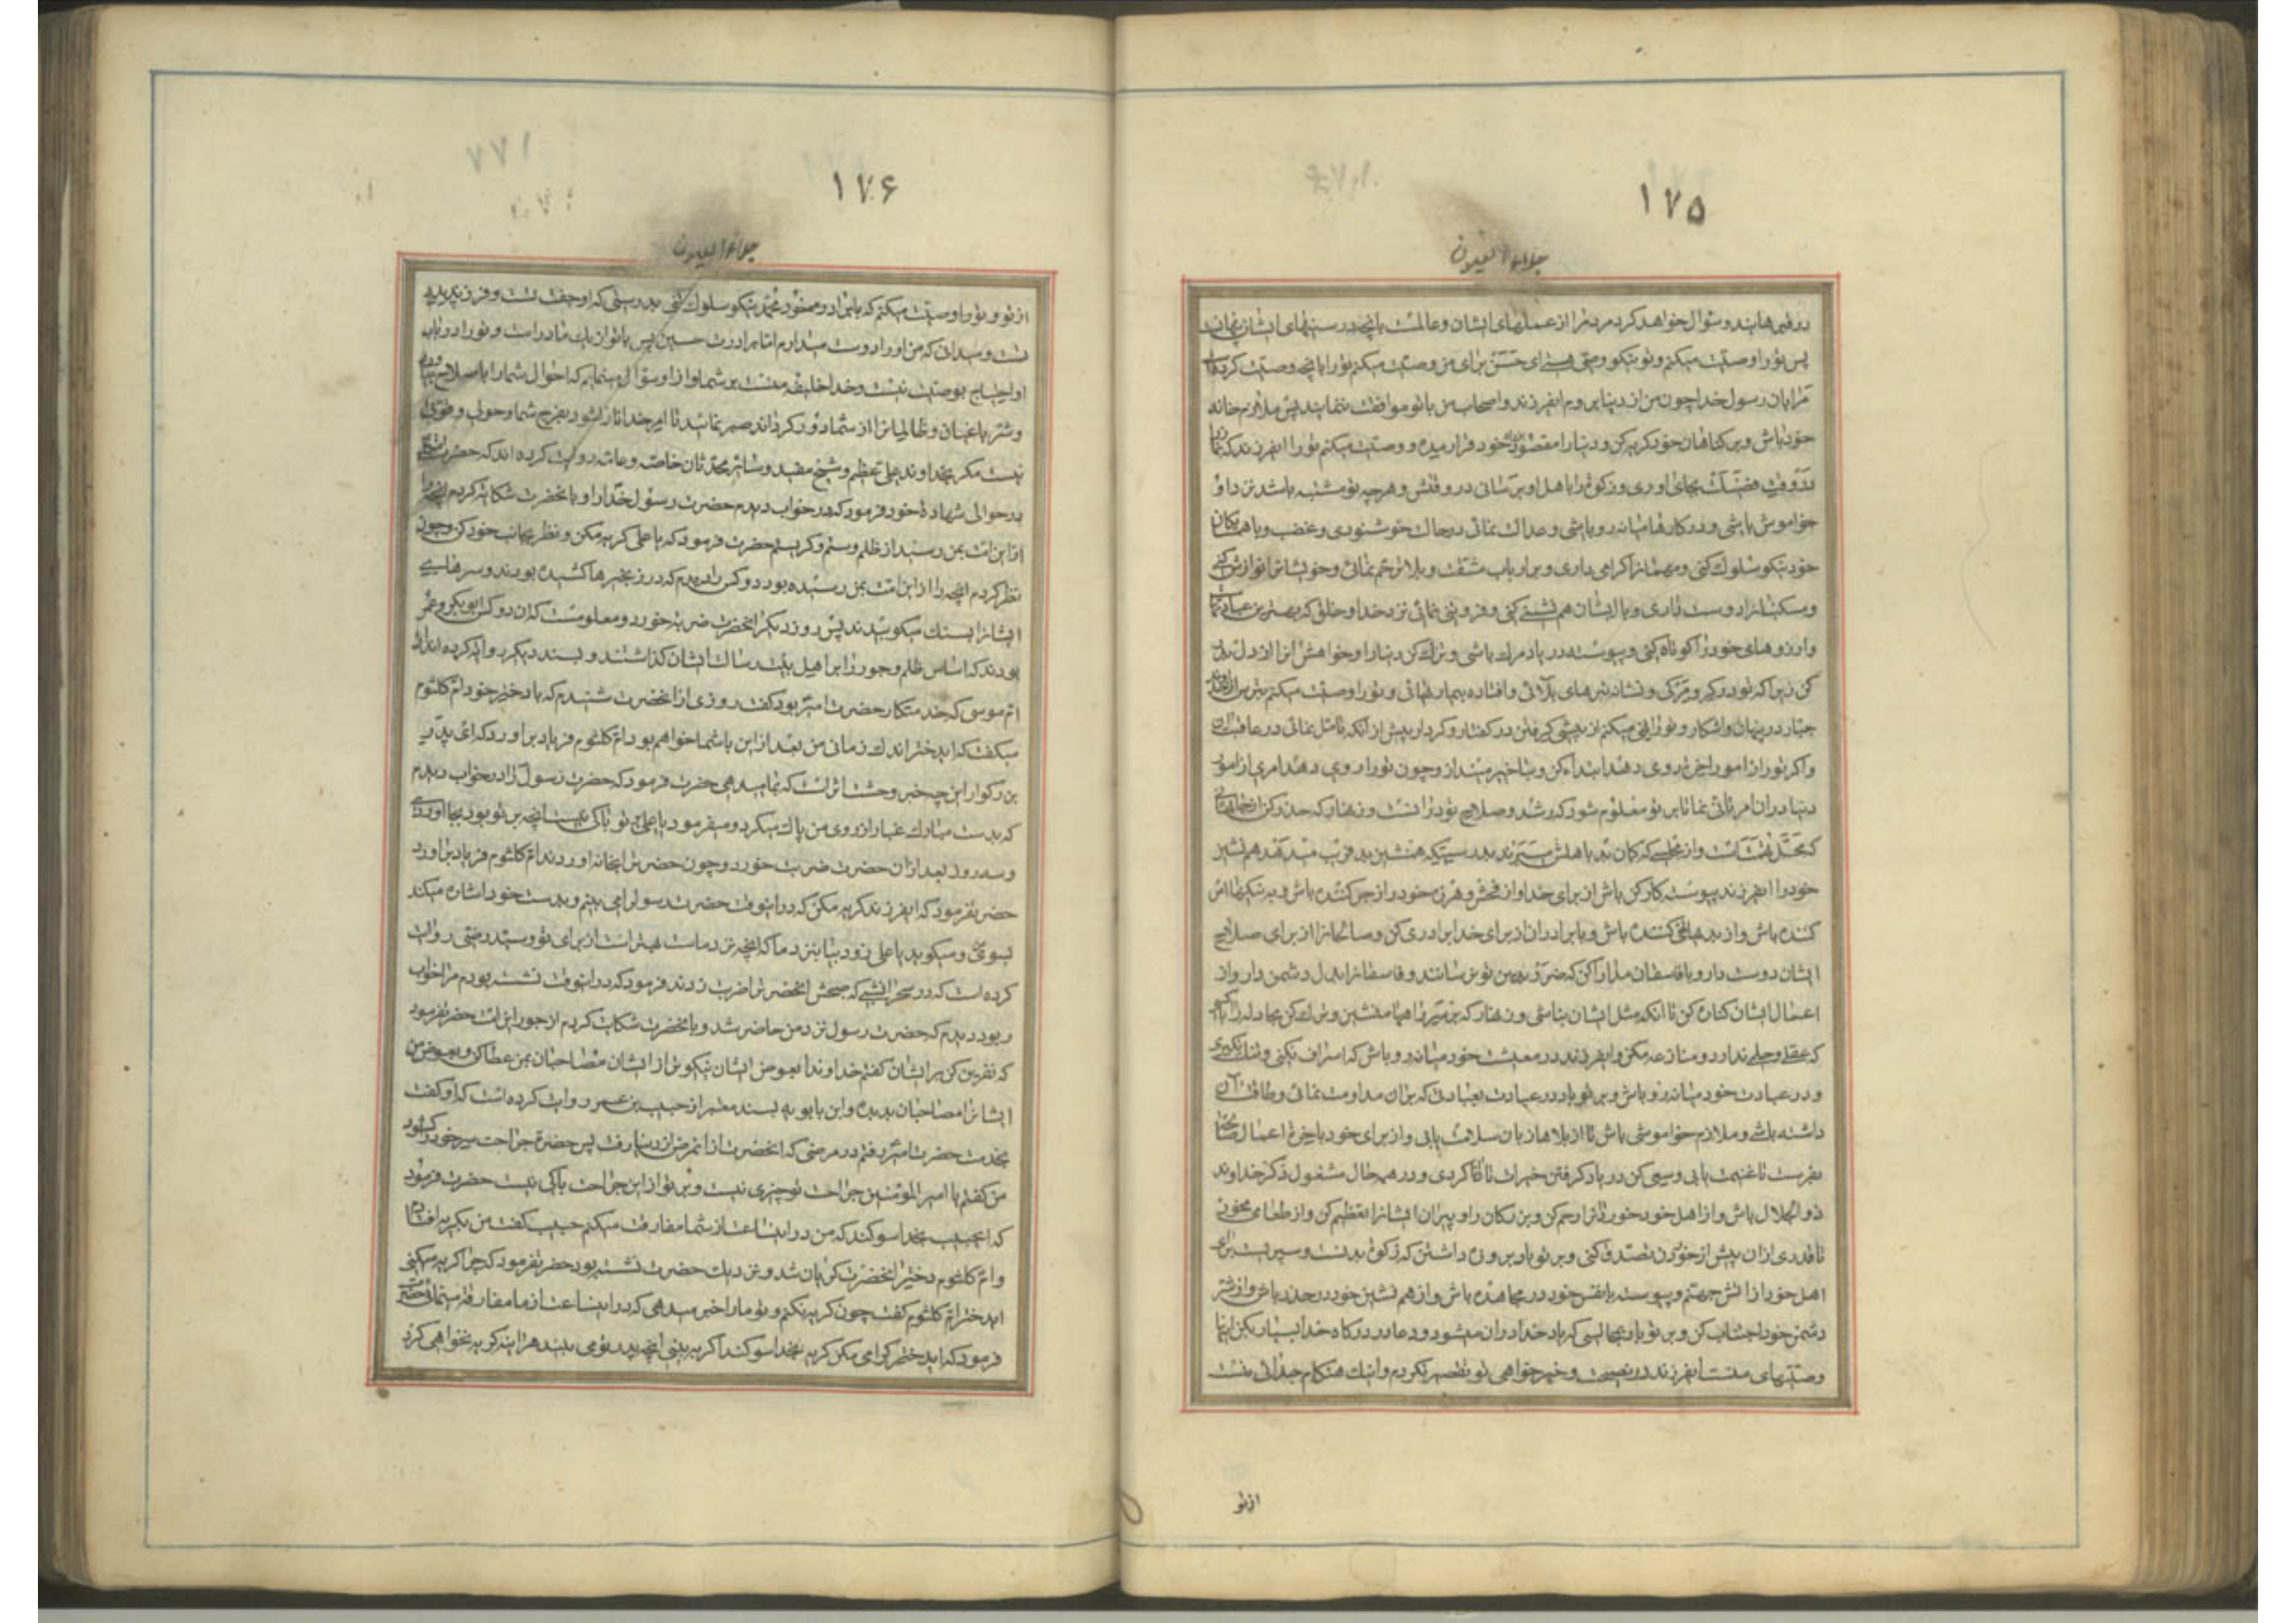 ۱۷۵
جلاء العیون
روقبرها بند و سؤال خواهد کرد مردم را از عملهای ایشان و عالمست بانچه در سینهای ایشان پنهان
پس تو را وصیت میکنم و تو نیکو وصی هستی ای حسن برای من وصیت میکنم تو را بانچه وصیت کرد
مرا بان رسول خدا چون من از دنیا بروم ایفرزند و اصحاب من با تو موافقت ننمایند پس ملازم خانه
خود باش و بر کناهان خود کریه کن و دنیا را مقصود خود قرار مده و وصیت میکنم تو را ایفرزند که نماز را
در وقت فضیلت بجای اوری و زکوة را باهل او برسانی در وقتش و هر چه بر تو مشتبه باشد نزد او
خواموش باشی و در کارها میانه رو باشی و عدالت نمائی در حال خوشنودی و غضب و با همسایکان
خود نیکو سلوك کنی و مهمانرا کرامی داری و بر ارباب مشقت و بلا ترحم نمائی و خویشانرا نوازش کنی
و مسکینانرا دوست داری و با ایشان همنشینی کنی و فروتنی نمائی نزد خدا و خلق که بهترین عبادتها
و ارزوهای خود را کوتاه کنی و پیوسته در یاد مرك باشی و ترك کن دنیا را و خواهش انرا از دل بدر
کن زیرا که تو در کرو مرکی و نشانه تیرهای بلائی و افتاده بیماریهائی و تو را وصیت میکنم بترس از خداوند
جبار در پنهان و اشکار و تو را نهی میکنم از پیشی کرفتن در کفتار و کردار پیش از انکه تامل نمائی در عاقبت ان
و اکر تو را از امور اخرة روی دهد ابتداء کن و بتاخیر مینداز و چون تو را روی دهد امری از امور
دنیا در ان امر تانی نما تا بر تو معلوم شود که رشد و صلاح تو در انست و زنهار که حذر کن از جاهائی
که محل تهمتست و از مجلسی که کمان بد باهلش میبرند بدرستیکه همنشین بد فریب میدهد همنشین
خود را ایفرزند پیوسته کارکن باش از برای خدا و از فحش و هرزه خود را زجر کننده باش و به نیکیها امر
کننده باش و از بدیها نهی کننده باش و با برادران از برای خدا برادری کن و صالحانرا از برای صلاح
ایشان دوست دار و با فاسقان مدارا کن که ضرر بدین تو نرسانند و فاسقانرا بدل دشمن دار و از
اعمال ایشان کناره کن تا انکه مثل ایشان نباشی و زنهار که بر سر راهها منشین و ترك کن مجادله را با کسی
که عقل و حلمی ندارد و منازعه مکن و ایفرزند در معیشت خود میانه رو باش که اسراف نکنی و تنك نکیری
و در عبادت خود میانه رو باش و بر تو باد در عبادت بعبادتی که بران مداومت نمائی و طاقت ان
داشته باشی و ملازم خواموشی باش تا از بلاها زبان سلامت یابی و از برای خود باخرة اعمال صالحه
بفرست تا غنیمت یابی و سعی کن در یاد کرفتن خیرات تا دانا کردی و در همه حال مشغول ذکر خداوند
ذو الجلال باش و از اهل خود خوردانرا رحم کن و بزرکان را و پیران ایشانرا تعظیم کن و از طعامی مخور
تا قدری از ان پیش از خوردن تصدق کنی و بر تو باد بروزه داشتن که زکوة بدنست و سپریست برای
اهل خود از اتش جهنم و پیوسته با نفس خود در مجاهده باش و از همنشین خود در حذر باش و از شر
دشمن خود اجتناب کن و بر تو باد بمجالسی که یاد خدا در ان میشود و دعا در درکاه خدا بسیار بکن اینها
وصیتهای منست ایفرزند در نصیحت و خیرخواهی تو تقصیر نکردم و اینك هنکام جدائی منست
از تو
۱۷۶
جلاء العیون
از تو و تو را وصیت میکنم که با برادر و مسعود محمد نیکو سلوك کنی بدرستی که او جفت تست و فرزند پدر
تست و میدانی که من او را دوست میدارم اما برادرت حسین پس با تو از یك مادر است و تو را در باب
او احتیاج بوصیت نیست و خدا خلیفه منست بر شما و از او سؤال مینمایم که احوال شما را باصلاح بیاورد
و شر باغیان و ظالمانرا از شما دور کرداند صبر نمائید تا امر خدا نازل شود بفرج شما و حولی و قوتی
نیست مکر بخداوند علی عظیم و شیخ مفید و سائر محدثان خاصه و عامه روایت کرده اند که حضرت
در حوالی شهادة خود فرمود که در خواب دیدم حضرت رسول خدا را و با نحضرت شکایة کردم انچه را
از این امت بمن رسید از ظلم و ستم و کریستم حضرت فرمود که یا علی کریه مکن و نظر بجانب خود کن چون
نظر کردم انچه را از این امت بمن رسیده بود دو کس را دیدم که در زنجیرها کشیده بودند و سرهای
ایشانرا بسنك میکوبیدند پس روز دیکر انحضرت ضربة خورد و معلومست که ان دو کس ابو بکر و عمر
بودند که اساس ظلم و جور را بر اهل بیت رسالت ایشان کذاشتند و بسند دیکر روایت کرده اند از
ام موسی که خدمتکار حضرت امیر بود کفت روزی از انحضرت شنیدم که با دختر خود ام کلثوم
میکفت که ایدختر اندك زمانی من بعد از این با شما خواهم بود ام کلثوم فریاد بر اورد که ای پدر
بزرکوار این چه خبر وحشت اثریست که بما میدهی حضرت فرمود که حضرت رسول را در خواب دیدم
که بدست مبارك غبار از روی من پاك میکرد و میفرمود یا علی بر تو باکی نیست انچه بر تو بود بجا اوردی
و سه روز بعد از ان حضرت ضربت خورد و چون حضرترا بخانه اوردند ام کلثوم فریاد بر اورد
حضرت فرمود که ایفرزند کریه مکن که در اینوقت حضرت رسولرا می بینم و بدست خود اشاره میکند
بسوی من و میکوید یا علی زود بیا بنزد ما که انچه نزد ماست بهتر است از برای تو و سید رضی روایت
کرده است که در سحر انشبی که صبحش انحضرترا ضربت زدند فرمود که در اینوقت نشسته بودم مرا خواب
ربود دیدم که حضرت رسول نزد من حاضر شد و با نحضرت شکایت کردم از جور این امت حضرت فرمود
که نفرین کن بر ایشان کفتم خداوندا بعوض ایشان نیکوتر از ایشان مصاحبان بمن عطا کن و بعوض من
ایشانرا مصاحبان بد بده و ابن بابویه بسند معتبر از حبیب بن عمر روایت کرده است که او کفت
بخدمت حضرت امیر رفتم در مرضی که انحضرت از ان مرض از دنیا رفت پس حضرة جراحت سر خود را کشود
من کفتم یا امیر المؤمنین جراحت تو چیزی نیست و بر تو از این جراحت باکی نیست حضرت فرمود
که ایحبیب بخدا سوکند که من در اینساعت از شما مفارقت میکنم حبیب کفت من بکریه افتادم
و ام کلثوم دختر انحضرت کریان شد و نزدیك حضرت نشسته بود حضرت فرمود که چرا کریه میکنی
ایدختر ام کلثوم کفت چون کریه نکنم و تو ما را خبر میدهی که در اینساعت از ما مفارقة مینمائی حضرت
فرمود که ایدختر کرامی مکن کریه بخدا سوکند اکر به بینی انچه پدر تو می بیند هر اینه کریه نخواهی کرد